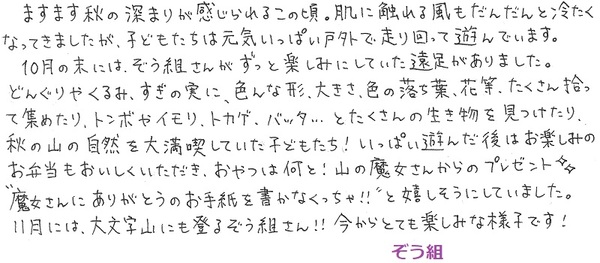 ますます秋の深まりが感じられるこの頃。肌に触れる風もだんだんと冷たく
なってきましたが、子どもたちは元気いっぱい戸外で走り回って遊んでいます。
10月の末には、ぞう組さんがずっと楽しみにしていた遠足がありました。
どんぐりやくるみ、すぎの実に、色んな形、大きさ、色の落ち葉、花等、たくさん拾っ
て集めたり、トンボやイモリ、トカゲ、バッタ…とたくさんの生き物を見つけたり、
秋の山の自然を大満喫していた子どもたち!いっぱい遊んだ後はお楽しみの
お弁当もおいしくいただき、おやつは何と!山の魔女さんからのプレゼント✧✧
"魔女さんにありがとうのお手紙を書かなくっちゃ!!"と嬉しそうにしていました。
11月には、大文字山にも登るぞう組さん!!今からとても楽しみな様子です!
ぞう組